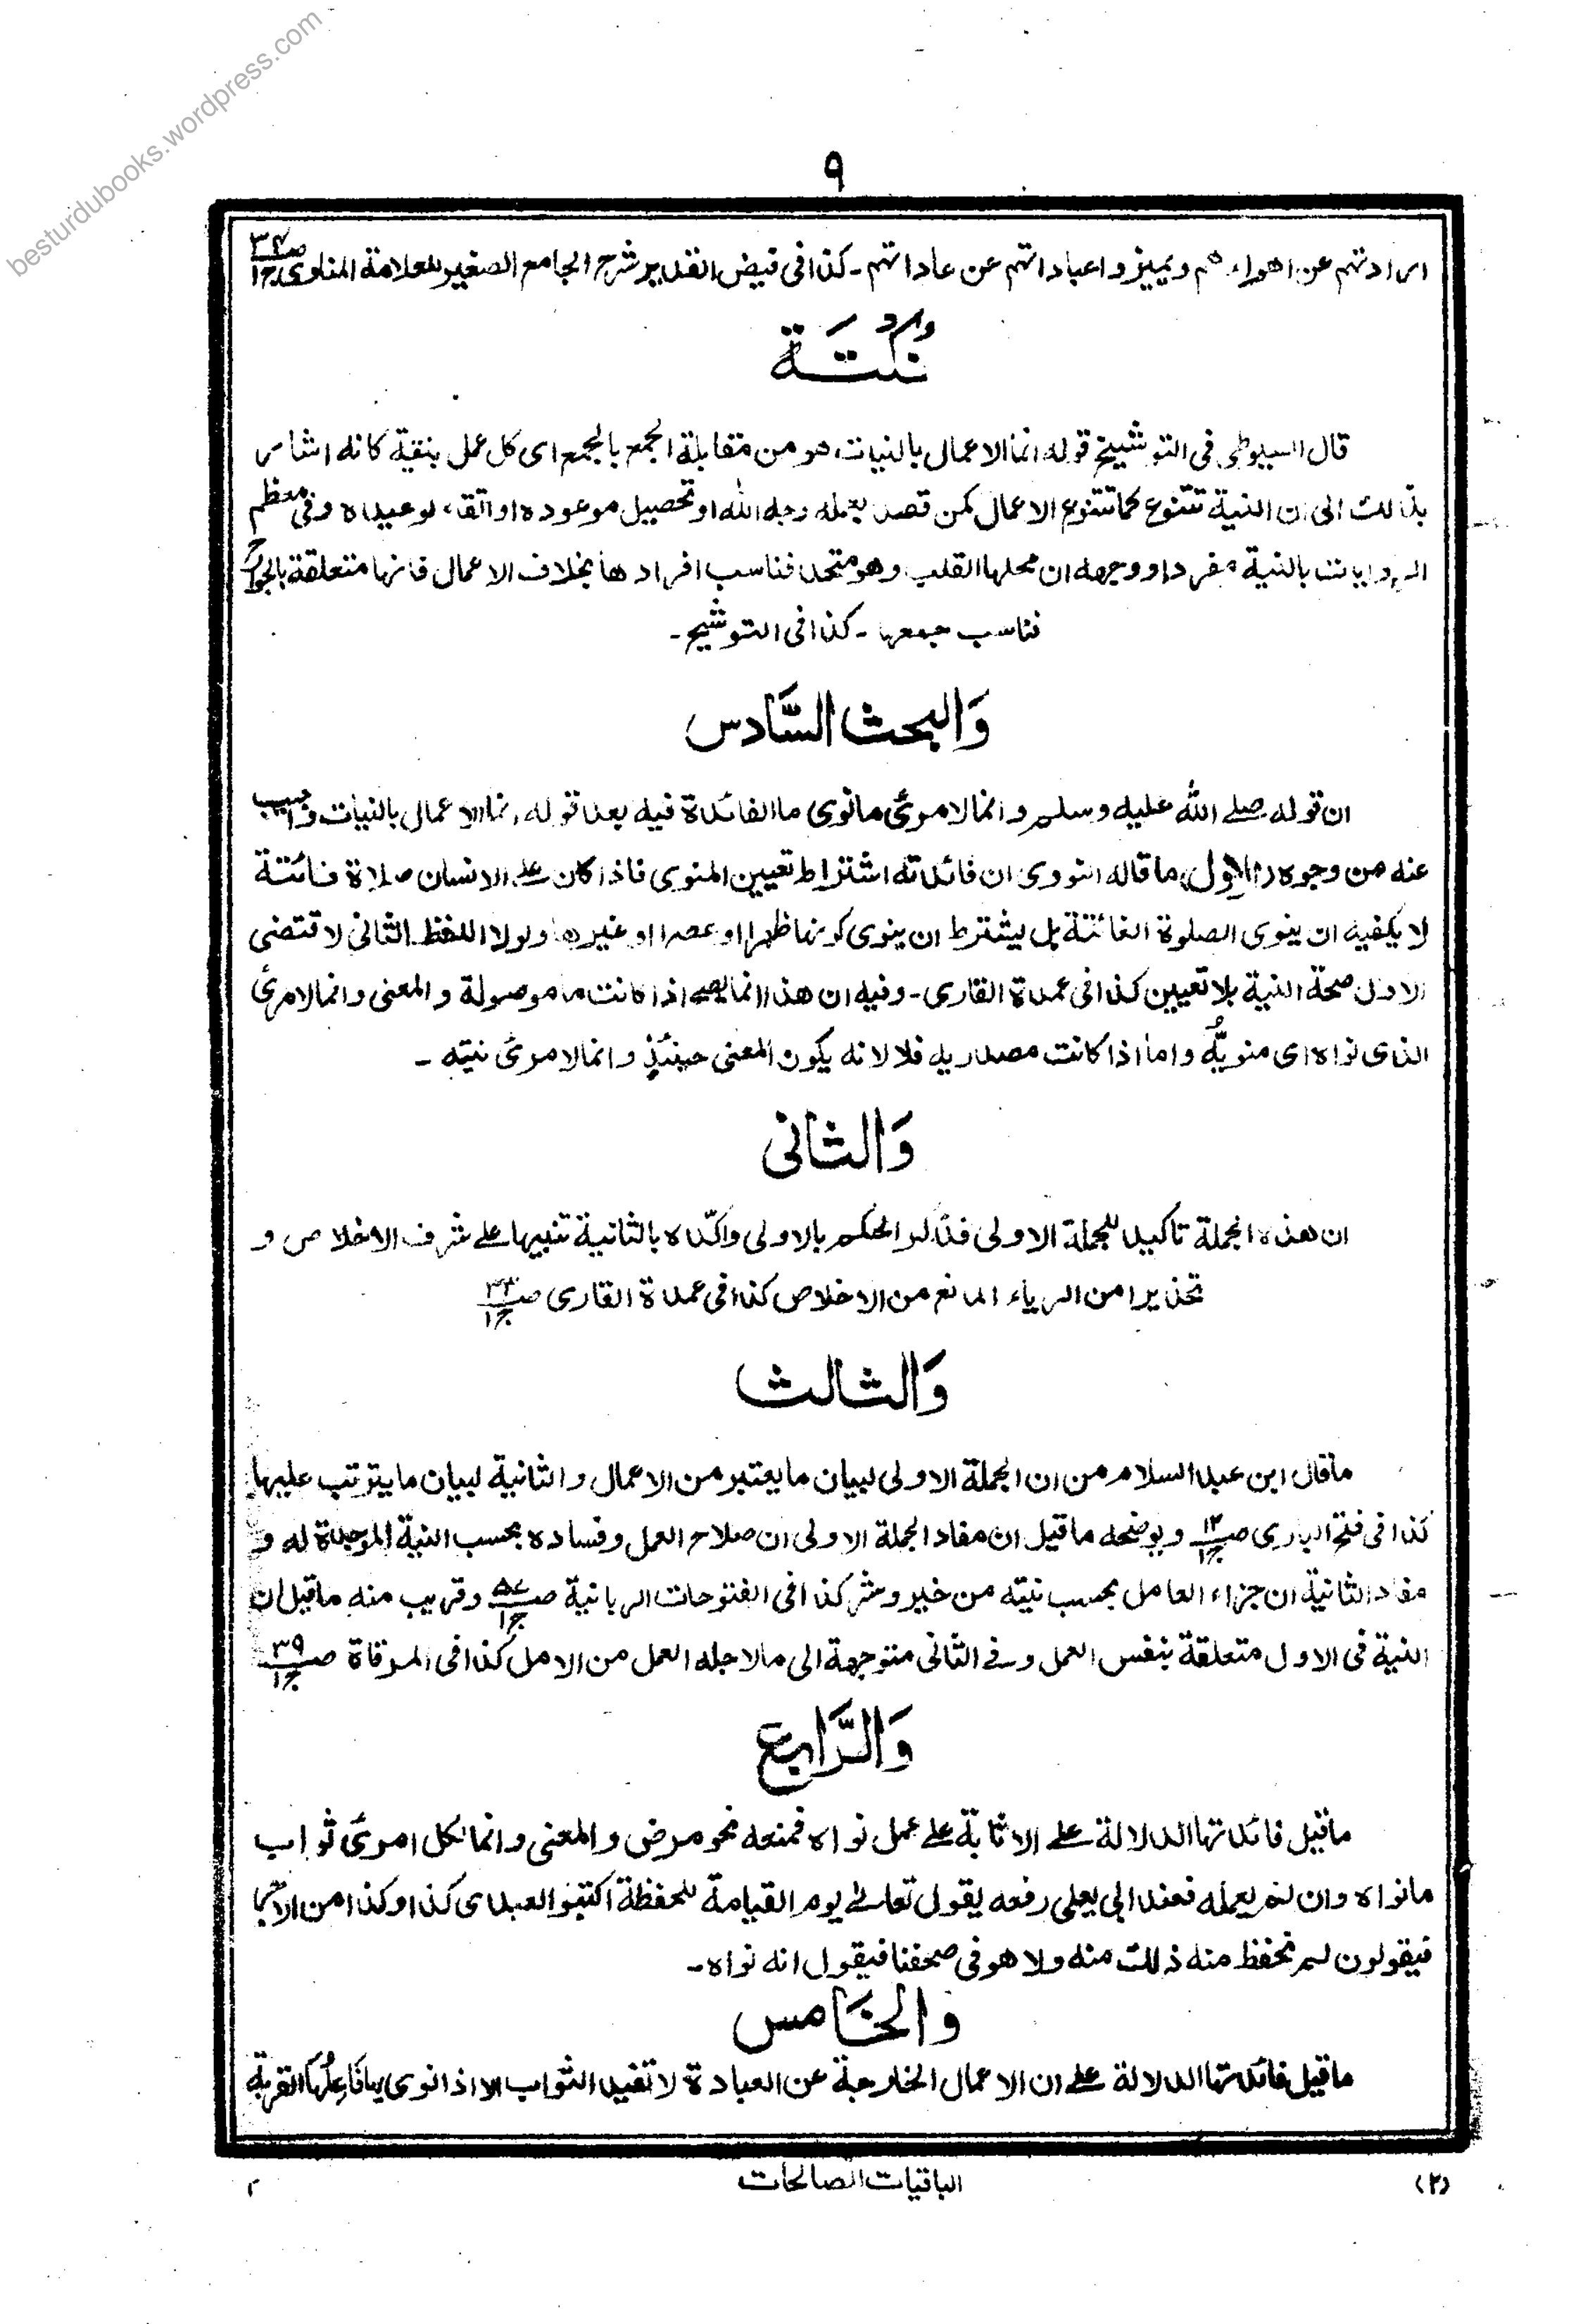 besturdubooks.wordpress.com
٩
ارادتهم عن اهواءهم ويميزوا عباداتهم عن عاداتهم ـ كذا فى فيض القدير شرح الجامع الصغير للعلامة المناوى صـ٣٤ ج١
نكتة
قال السيوطى فى التوشيح قوله انما الاعمال بالنيات، هو من مقابلة الجمع بالجمع اى كل عمل بنية كانه اشار
بذالك الى ان النية تتنوع كما تتنوع الاعمال كمن قصد بعمله وجه الله او تحصيل موعوده او اتقاء لوعيده وفى معظم
الروايات بالنية مفردا ووجهه ان محلها القلب وهو متحد فناسب افرادها بخلاف الاعمال فانها متعلقة بالجوارح
فناسب جمعها ـ كذا فى التوشيح ـ
وَالبحث السَّادس
ان قوله صلے الله عليه وسلم وانما لامرئ ما نوى ما الفائدة فيه بعد قوله انما الاعمال بالنيات واجيب
عنه من وجوه (الاول) ما قاله النووى ان فائدته اشتراط تعيين المنوى فاذا كان علے الانسان صلاة فائتة
لا يكفيه ان ينوى الصلوة الفائتة بل يشترط ان ينوى كونها ظهرا او عصرا او غيرها ولولا اللفظ الثانى لاقتضى
الاول صحة النية بلا تعيين كذا فى عمدة القارى ـ وفيه ان هذا انما يصح اذا كانت ما موصولة والمعنى وانما لامرئ
الذى نواه اى منويُّه واما اذا كانت مصدريه فلا لانه يكون المعنى حينئذٍ وانما لامرئ نيته ـ
وَالثانى
ان هذه الجملة تأكيد للجملة الاولى فذكر الحكم بالاولى واكّده بالثانية تنبيها علے شرف الاخلاص و
تحذيرا من الرياء المانع من الاخلاص كذا فى عمدة القارى صـ٣٣ ج١
وَالثالث
ما قال ابن عبد السلام من ان الجملة الاولى لبيان ما يعتبر من الاعمال والثانية لبيان ما يترتب عليها
كذا فى فتح البارى صـ١٢ ج١ ويوضحه ما قيل ان مفاد الجملة الاولى ان صلاح العمل وفساده بحسب النية الموجدة له و
مفاد الثانية ان جزاء العامل بحسب نيته من خير وشر كذا فى الفتوحات الربانية صـ٥٧ ج١ وقريب منه ما قيل ان
النية فى الاول متعلقة بنفس العمل وفے الثانى متوجهة الى ما لاجله العمل من الامل كذا فى المرقاة صـ٣٩ ج١
وَالرَّابع
ما قيل فائدتها الدلالة علے الاثابة علے عمل نواه فمنعه نحو مرض والمعنى وانما لكل امرئ ثواب
ما نواه وان لم يعمله فعند ابى يعلى رفعه يقول تعالے يوم القيامة للحفظة اكتبوا لعبدى كذا وكذا من الاجر
فيقولون لم نحفظ منه ذلك منه ولا هو فى صحفنا فيقول انه نواه ـ
والخَامس
ما قيل فائدتها الدلالة علے ان الاعمال الخارجة عن العبادة لا تفيد الثواب الا اذا نوى بها فاعلها القربة
(٢)
الباقيات الصالحات